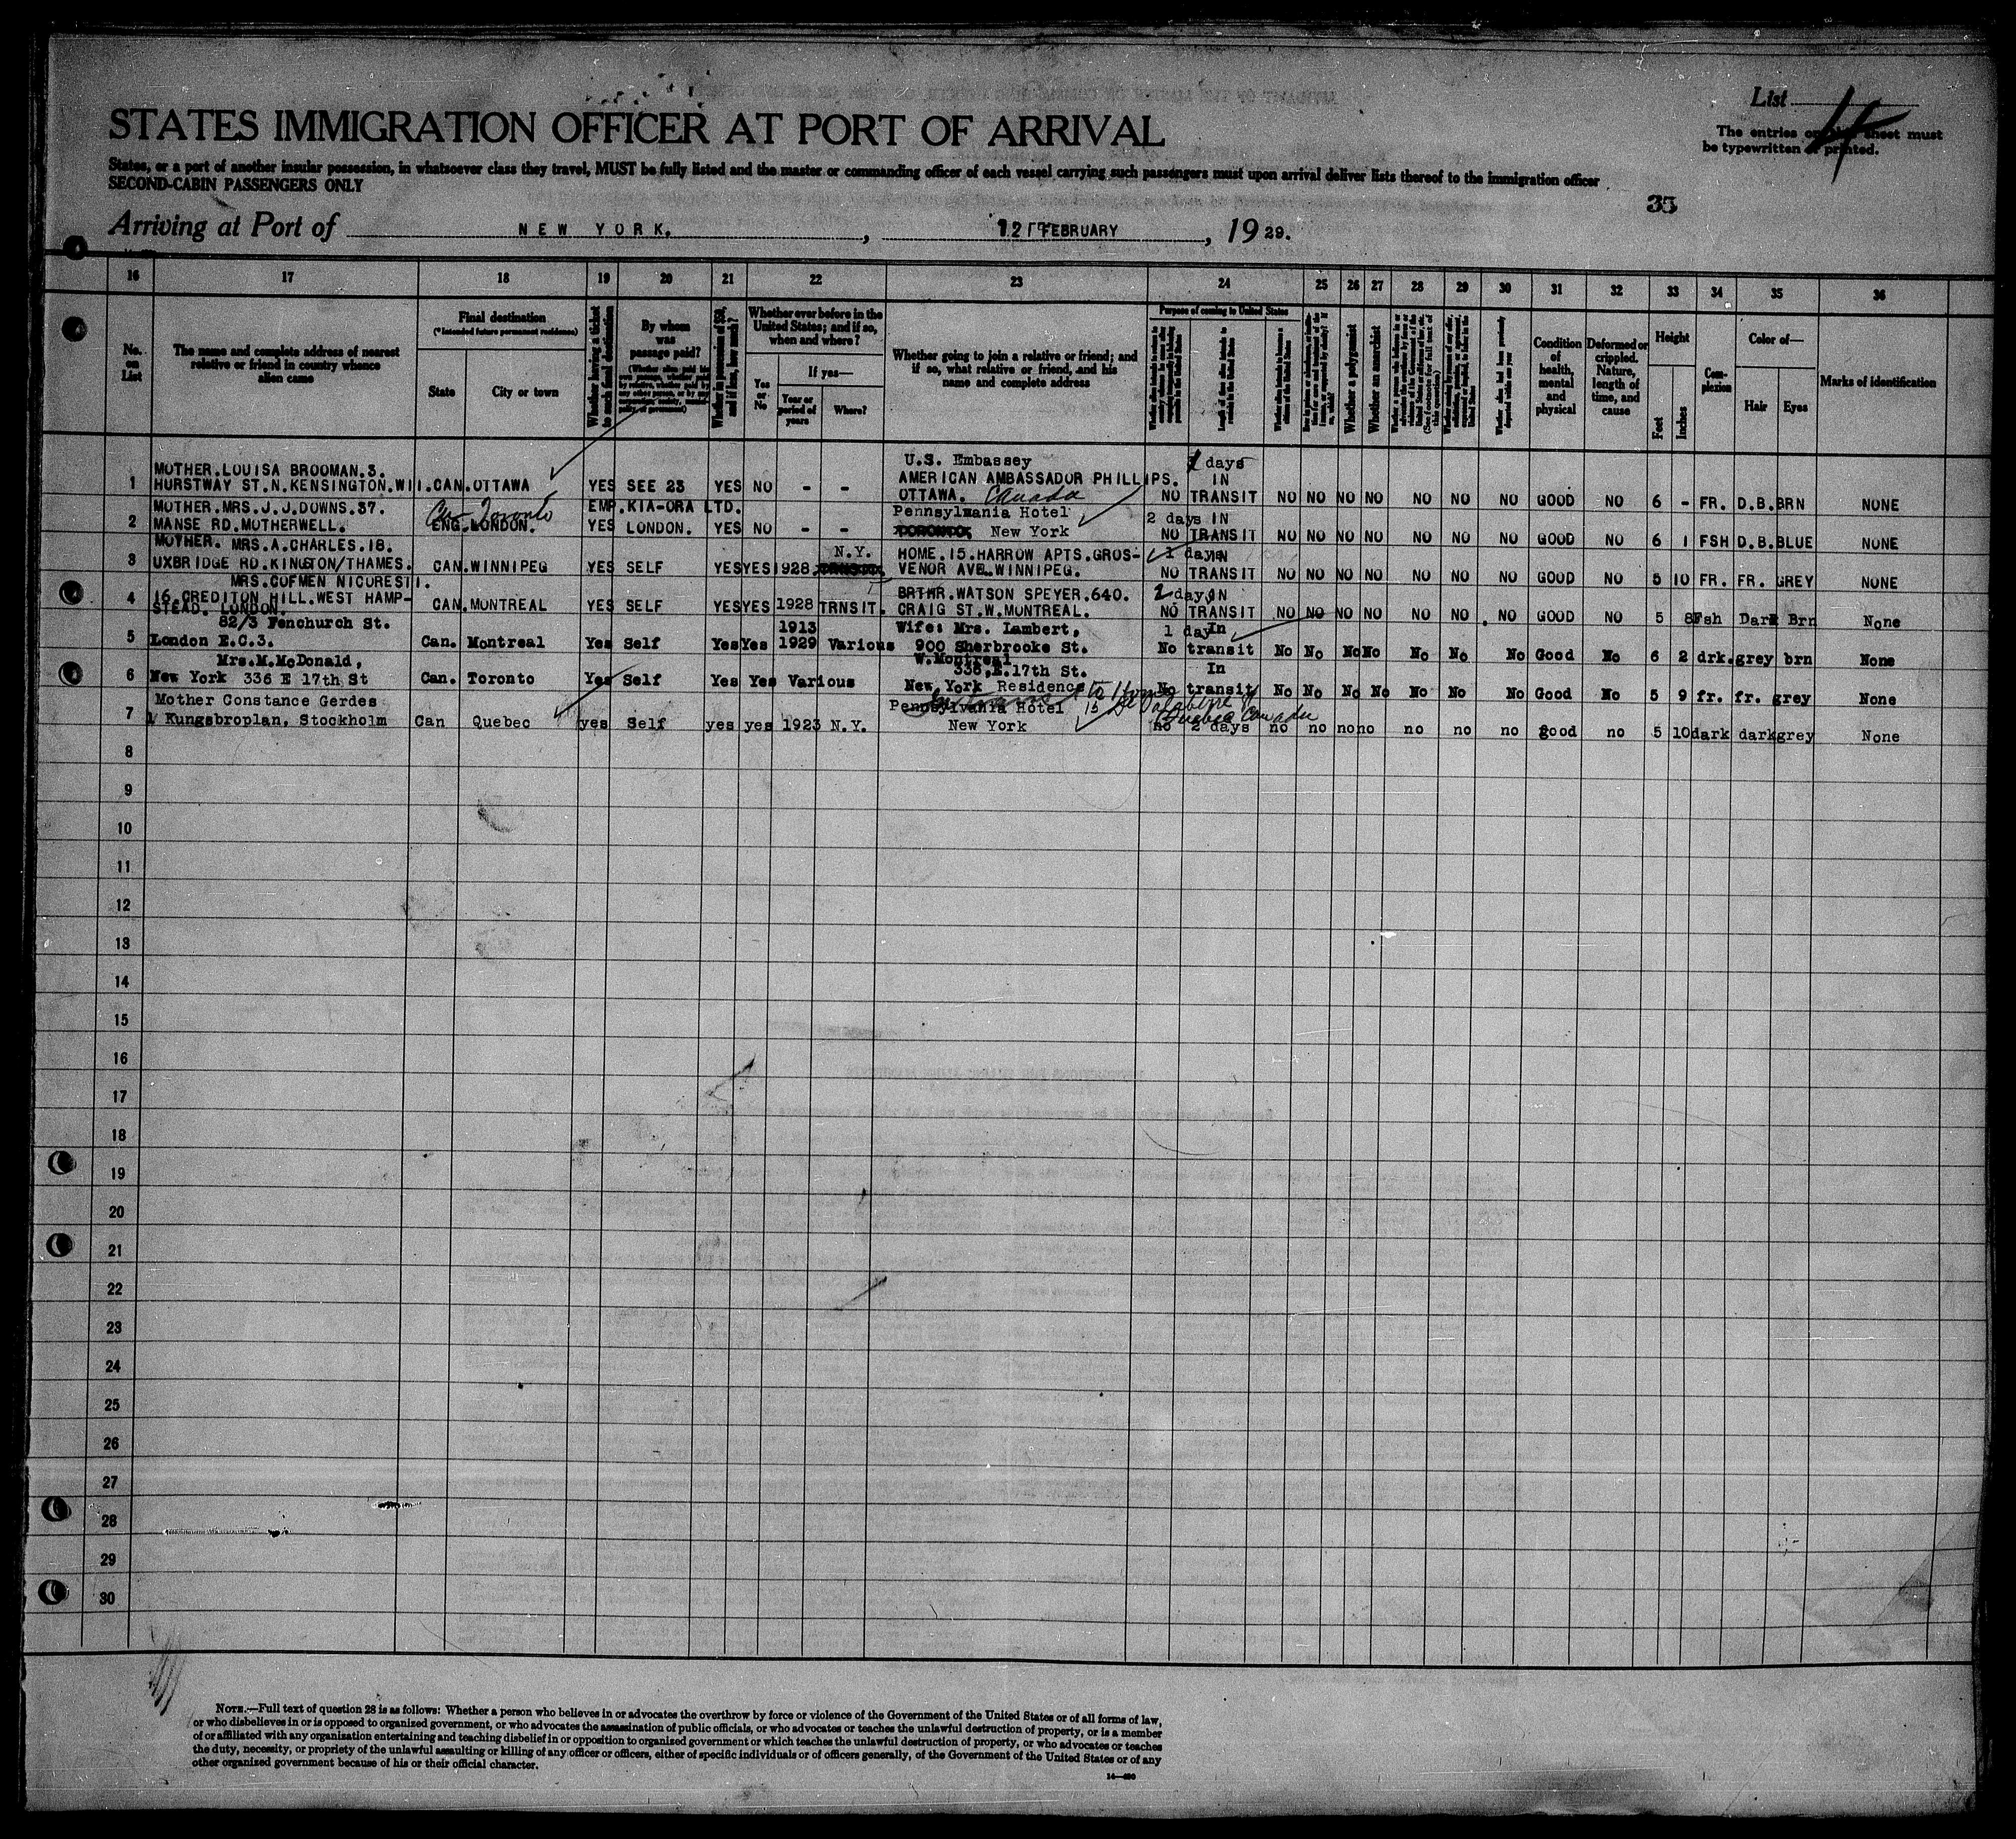 List 4
STATES IMMIGRATION OFFICER AT PORT OF ARRIVAL
The entries on this sheet must
be typewritten or printed.
States, or a part of another insular possession, in whatsoever class they travel, MUST be fully listed and the master or commanding officer of each vessel carrying such passengers must upon arrival deliver lists thereof to the immigration officer
SECOND-CABIN PASSENGERS ONLY
35
Arriving at Port of NEW YORK. , 12 FEBRUARY , 19 29.
16 17 18 19 20 21 22 23 24 25 26 27 28 29 30 31 32 33 34 35 36
No. on List
The name and complete address of nearest relative or friend in country whence alien came
Final destination
(*Intended future permanent residence)
State
City or town
Whether having a ticket to such final destination
By whom was passage paid?
Whether in possession of $50, and if less, how much?
Whether ever before in the United States; and if so, when and where?
Yes or No
If yes—
Year or period of years
Where?
Whether going to join a relative or friend; and if so, what relative or friend, and his name and complete address
Purpose of coming to United States
Whether a polygamist
Whether an anarchist
Condition of health, mental and physical
Deformed or crippled. Nature, length of time, and cause
Height
Feet
Inches
Complexion
Color of—
Hair
Eyes
Marks of identification
U.S. Embassey 1 days
MOTHER.LOUISA BROOMAN.3. AMERICAN AMBASSADOR PHILLIPS. IN
1 HURSTWAY ST.N.KENSINGTON.W11. CAN. OTTAWA YES SEE 23 YES NO - - OTTAWA. Canada NO TRANSIT NO NO NO NO NO NO NO GOOD NO 6 - FR. D.B. BRN NONE
MOTHER.MRS.J.J.DOWNS.37. Can Toronto EMP.KIA-ORA LTD. Pennsylmania Hotel 2 days IN
2 MANSE RD.MOTHERWELL. ENG.LONDON. YES LONDON. YES NO - - TORONTO. New York NO TRANSIT NO NO NO NO NO NO NO GOOD NO 6 1 FSH D.B. BLUE NONE
MOTHER. MRS.A.CHARLES.18. N.Y. HOME.15.HARROW APTS.GROS- 1 day IN
3 UXBRIDGE RD.KINGSTON/THAMES. CAN. WINNIPEG YES SELF YES YES 1928 VENOR AVE.WINNIPEG. NO TRANSIT NO NO NO NO NO NO NO GOOD NO 5 10 FR. FR. GREY NONE
MRS.COFMEN NICORESTI. BRTHR.WATSON SPEYER.640. 2 day IN
4 16.CREDITON HILL.WEST HAMP- CAN. MONTREAL YES SELF YES YES 1928 TRNSIT. CRAIG ST.W.MONTREAL. NO TRANSIT NO NO NO NO NO NO NO GOOD NO 5 8 Fsh Dark Brn None
STEAD. LONDON.
82/3 Fenchurch St. 1913 Wife: Mrs. Lambert, 1 day In
5 London E.C.3. Can. Montreal Yes Self Yes Yes 1929 Various 900 Sherbrooke St. No transit No No No No No No No Good No 6 2 drk. grey brn None
W.Montreal
Mrs.M.McDonald, 336,E.17th St. In
6 New York 336 E 17th St Can. Toronto Yes Self Yes Yes Various New York Residence No transit No No No No No No No Good No 5 9 fr. fr. grey None
Mother Constance Gerdes Pennsylvania Hotel to Home 15
Quebec Canada
7 1/ Kungsbroplan, Stockholm Can Quebec yes Self yes yes 1923 N.Y. New York no 2 days no no no no no no no good no 5 10 dark dark grey None
8
9
10
11
12
13
14
15
16
17
18
19
20
21
22
23
24
25
26
27
28
29
30
NOTE.—Full text of question 28 is as follows: Whether a person who believes in or advocates the overthrow by force or violence of the Government of the United States or of all forms of law,
or who disbelieves in or is opposed to organized government, or who advocates the assassination of public officials, or who advocates or teaches the unlawful destruction of property, or is a member
of or affiliated with any organization entertaining and teaching disbelief in or opposition to organized government or which teaches the unlawful destruction of property, or who advocates or teaches
the duty, necessity, or propriety of the unlawful assaulting or killing of any officer or officers, either of specific individuals or of officers generally, of the Government of the United States or of any
other organized government because of his or their official character.
14—480